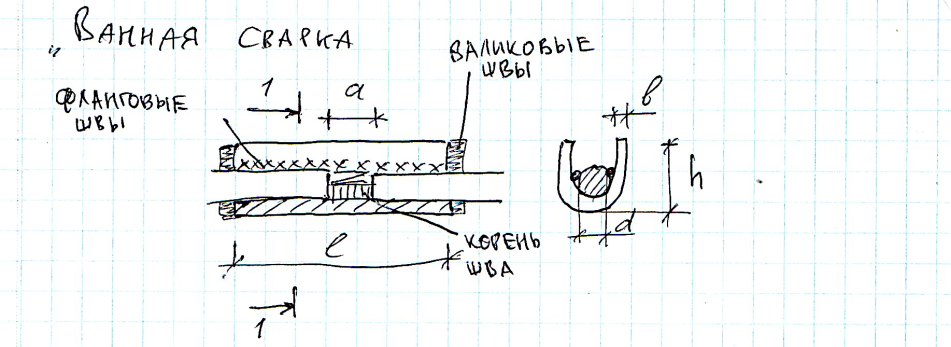 „ВАННАЯ СВАРКА
ВАЛИКОВЫЕ
ШВЫ
ФЛАНГОВЫЕ
ШВЫ
1
a
b
h
d
l
КОРЕНЬ
ШВА
1